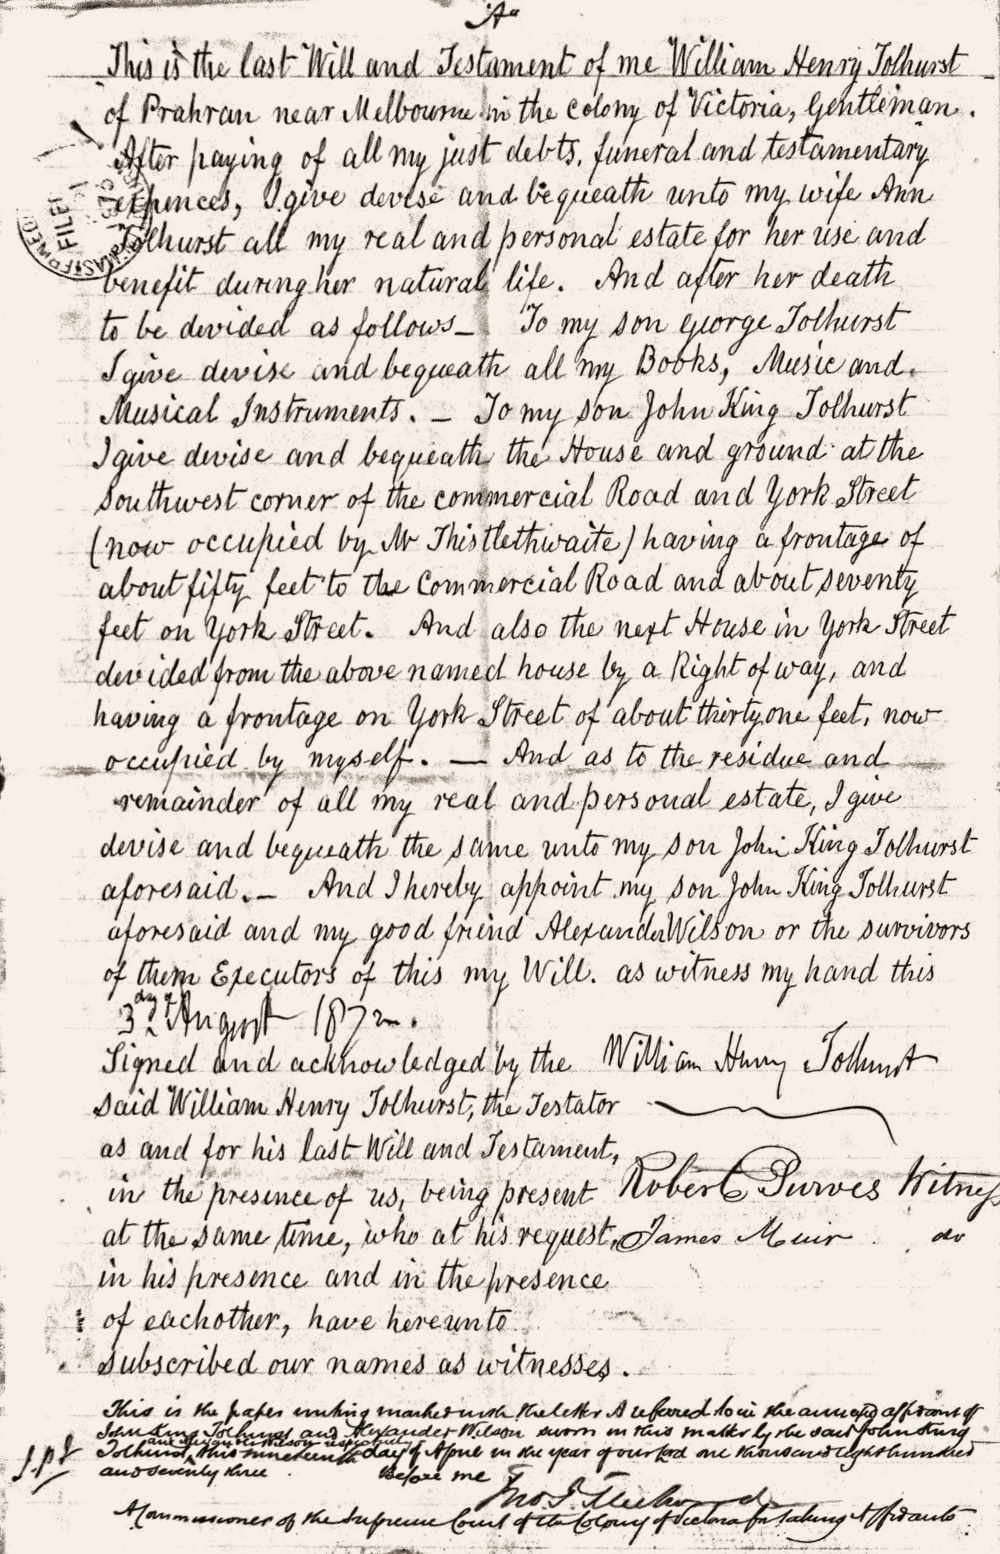 "A"
This is the last Will and Testament of me William Henry Tolhurst
of Prahran near Melbourne in the colony of Victoria, Gentleman.
After paying of all my just debts, funeral and testamentary
expences, I give devise and bequeath unto my wife Ann
Tolhurst all my real and personal estate for her use and
benefit during her natural life. And after her death
to be devided as follows_ To my son George Tolhurst
I give devise and bequeath all my Books, Music and
Musical Instruments. _ To my son John King Tolhurst
I give devise and bequeath the House and ground at the
Southwest corner of the commercial Road and York Street
(now occupied by Mr Thistlethwaite) having a frontage of
about fifty feet to the Commercial Road and about seventy
feet on York Street. And also the next House in York Street
devided from the above named house by a Right of way, and
having a frontage on York Street of about thirty one feet, now
occupied by myself. — And as to the residue and
remainder of all my real and personal estate, I give
devise and bequeath the same unto my son John King Tolhurst
aforesaid._ And I hereby appoint my son John King Tolhurst
aforesaid and my good friend Alexander Wilson or the survivors
of them Executors of this my Will. as witness my hand this
3rd day of August 1872.
Signed and acknowledged by the William Henry Tolhurst
said William Henry Tolhurst, the Testator
as and for his last Will and Testament,
in the presence of us, being present Robert Purves Witness
at the same time, who at his request, James Muir do
in his presence and in the presence
of eachother, have hereunto
subscribed our names as witnesses.
This is the paper writing marked with the letter A referred to in the annexed affidavit of
John King Tolhurst and Alexander Wilson sworn in this matter by the said John King
Tolhurst and Alexander Wilson this nineteenth day of April in the year of our lord one thousand eight hundred
and seventy three Before me
A Commissioner of the Supreme Court of the Colony of Victoria for taking Affidavits
FILED